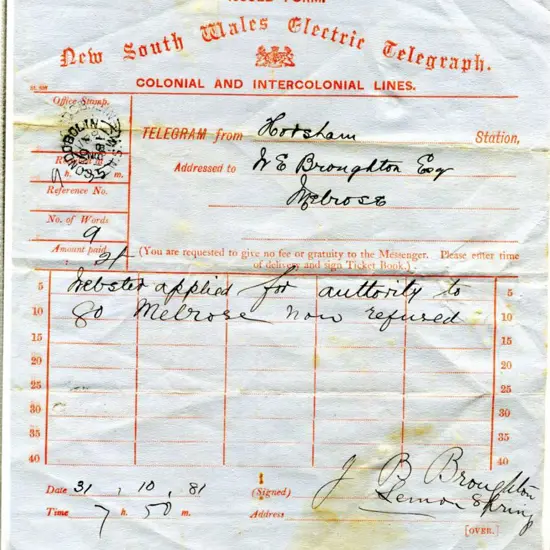 New South Wales Electric Telegraph.
COLONIAL AND INTERCOLONIAL LINES.
Office Stamp.
CONDOBOLIN
TELEGRAM from Horsham Station,
Addressed to W E Broughton Esq
Melrose
h. m.
Reference No.
No. of Words
9
Amount paid
2/-
(You are requested to give no fee or gratuity to the Messenger. Please enter time
of delivery and sign Ticket Book.)
5 Webster applied for authority to 5
10 go Melrose now refused 10
15 15
20 20
25 25
30 30
35 35
40 40
Date 31 , 10 , 81 (Signed) J B Broughton
Time 7 h. 50 m. Address Lemon Spring
[OVER.]